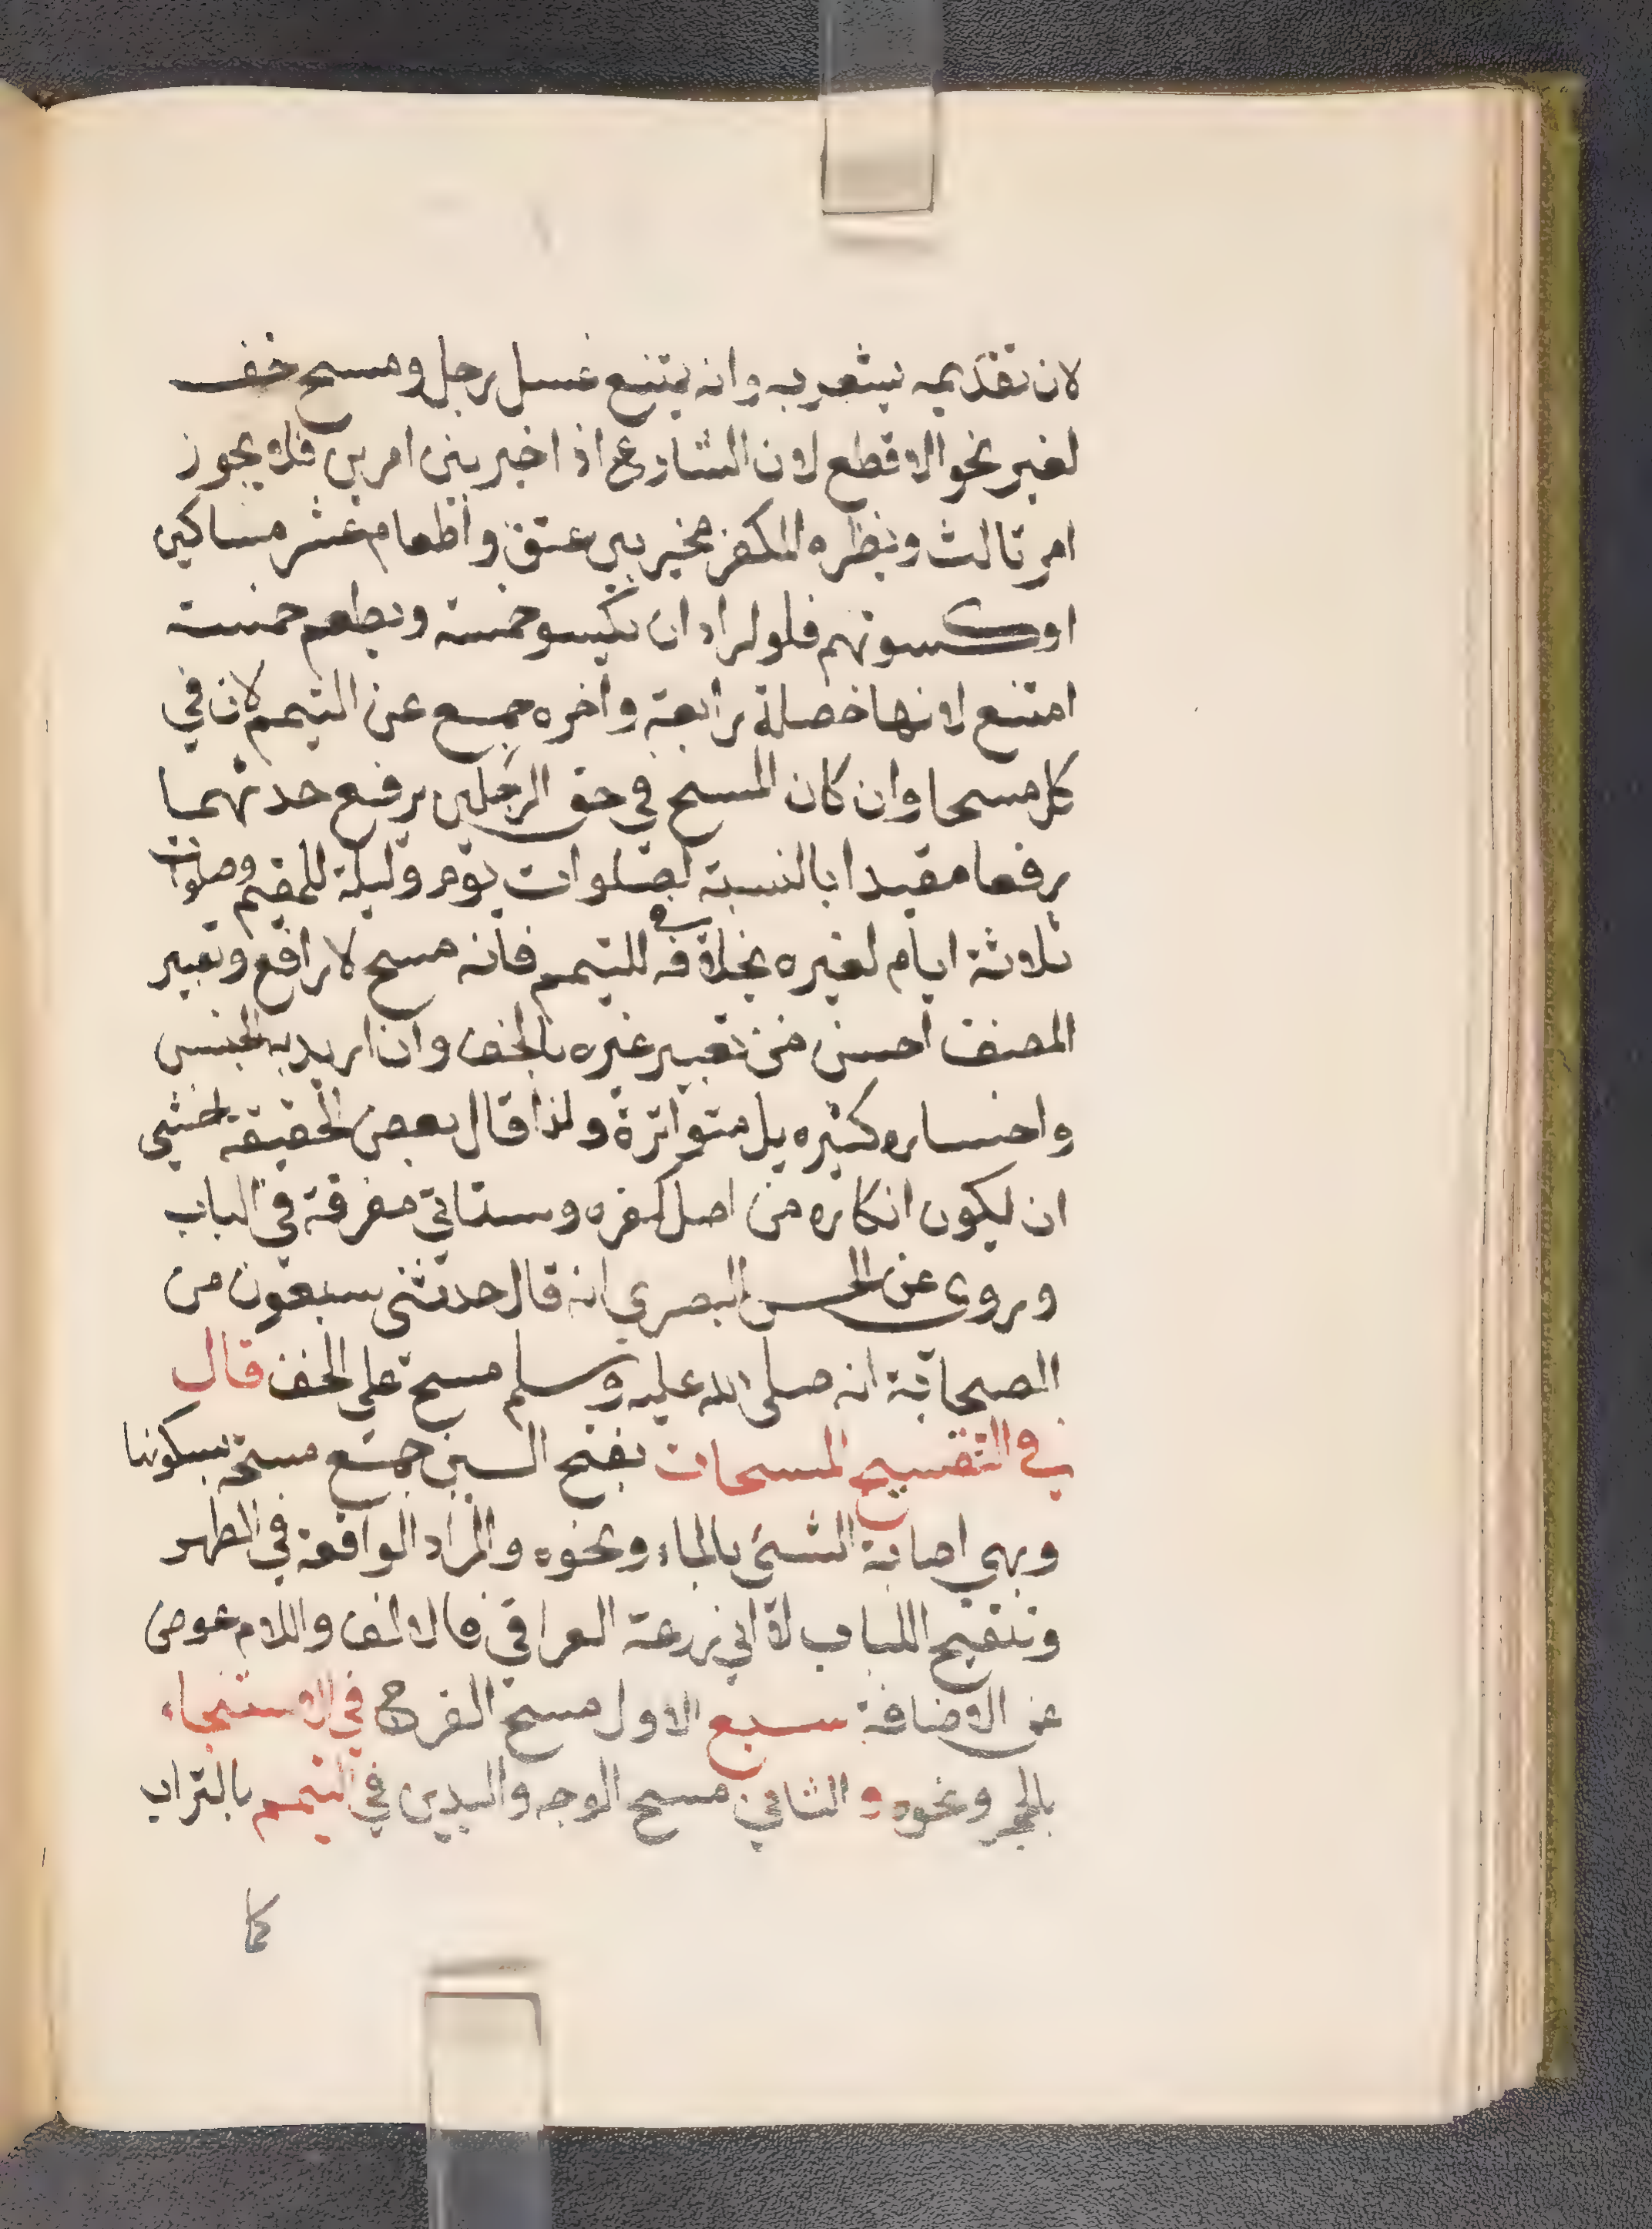 لان تقديمه يشعر به وانه يمتنع غسل رجل ومسح خف
لغير نحو الاقطع لان الشارع اذا خير بين امرين فلا يجوز
امر ثالث ونظره المكفر مخير بين عتق واطعام عشر مساكين
او كسوتهم فلو اراد ان يكسو خمسة ويطعم خمسة
امتنع لانها خصلة رابعة واخره جمع عن التيمم لان في
كل مسحا وان كان المسح في حق الرجلين يرفع حدثهما
رفعا مقيدا بالنسبة لصلوات يوم وليلة للمقيم وصلوات
ثلاثة ايام لغيره بخلافه في للتيمم فانه مسح لا رافع وتعبير
المصنف احسن من تعبير غيره بالخف وان اريد به الجنس
واخباره كثيره بل متواترة ولذا قال بعض الحقيقة اخشى
ان يكون انكاره من اصل كفره وستاتي مفرقة في الباب
وروى عن الحسن البصري انه قال حدثني سبعون من
الصحابة انه صلى الله عليه وسلم مسح على الخف قال
في التنقيح المسحات بفتح السين جمع مسحة بسكونها
وهي اصابة الشئ بالماء ونحوه والمراد الواقعة في الطهر
وتنقيح اللباب لابي زرعة العراقي فالالف واللام عوض
عن الاضافة سبع الاول مسح الفرج في الاستنجاء
بالحجر ونحوه و الثاني مسح الوجه واليدين في التيمم بالتراب
كما